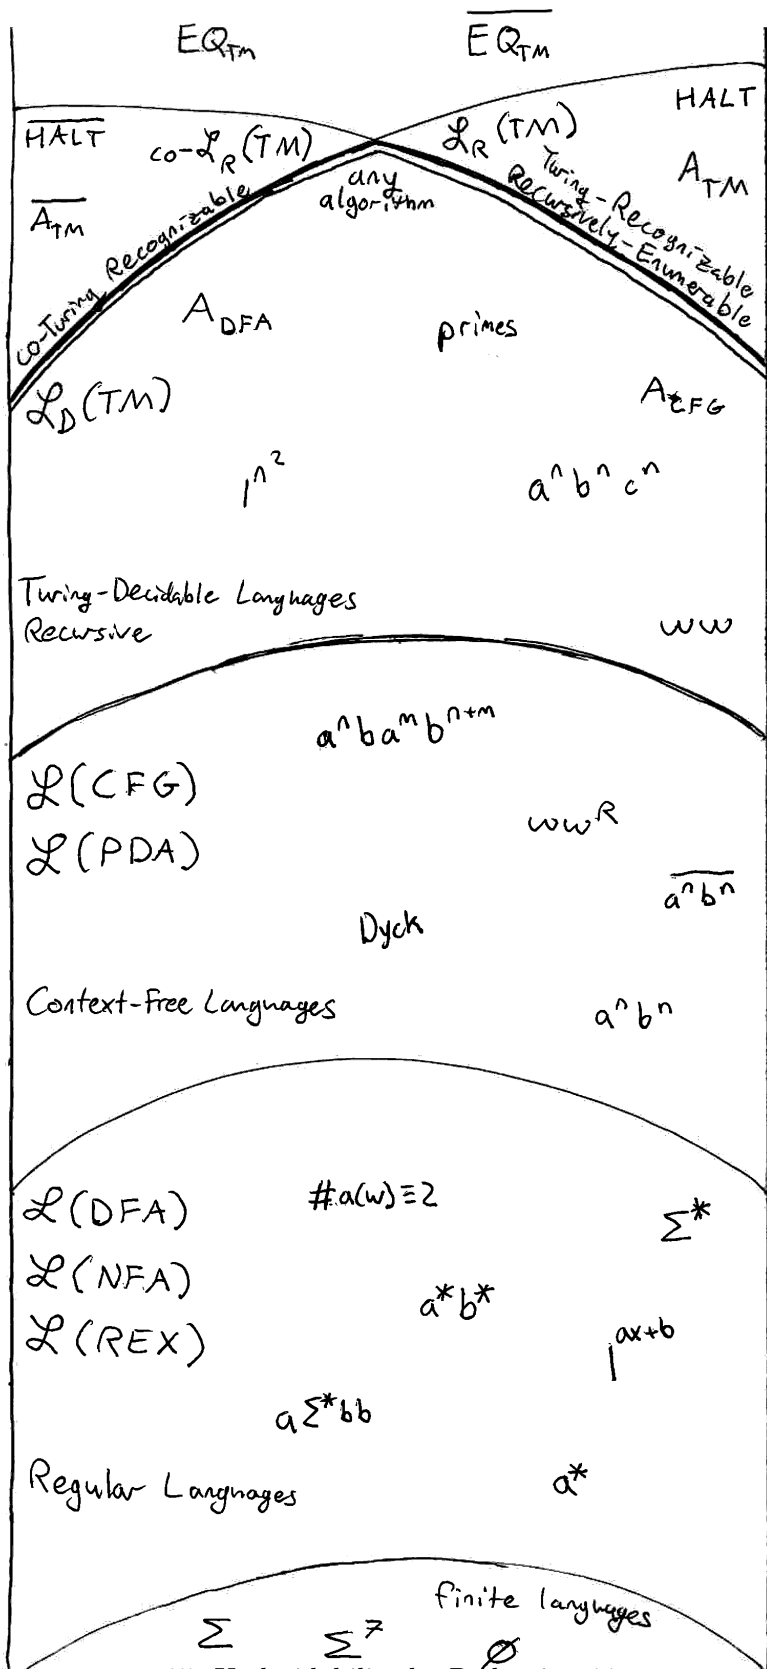 EQ_TM
\overline{EQ_TM}
\overline{HALT}
co-ℒ_R(TM)
ℒ_R(TM)
HALT
\overline{A_TM}
co-Turing Recognizable
any
algorithm
Turing-Recognizable
Recursively-Enumerable
A_TM
A_DFA
primes
ℒ_D(TM)
A_CFG
1^{n^2}
a^n b^n c^n
Turing-Decidable Languages
Recursive
ww
a^n b a^m b^{n+m}
ℒ(CFG)
ww^R
ℒ(PDA)
\overline{a^n b^n}
Dyck
Context-Free Languages
a^n b^n
ℒ(DFA)
#a(w)≡2
Σ*
ℒ(NFA)
a*b*
ℒ(REX)
1^{ax+b}
aΣ*bb
Regular Languages
a*
finite languages
Σ
Σ^7
∅